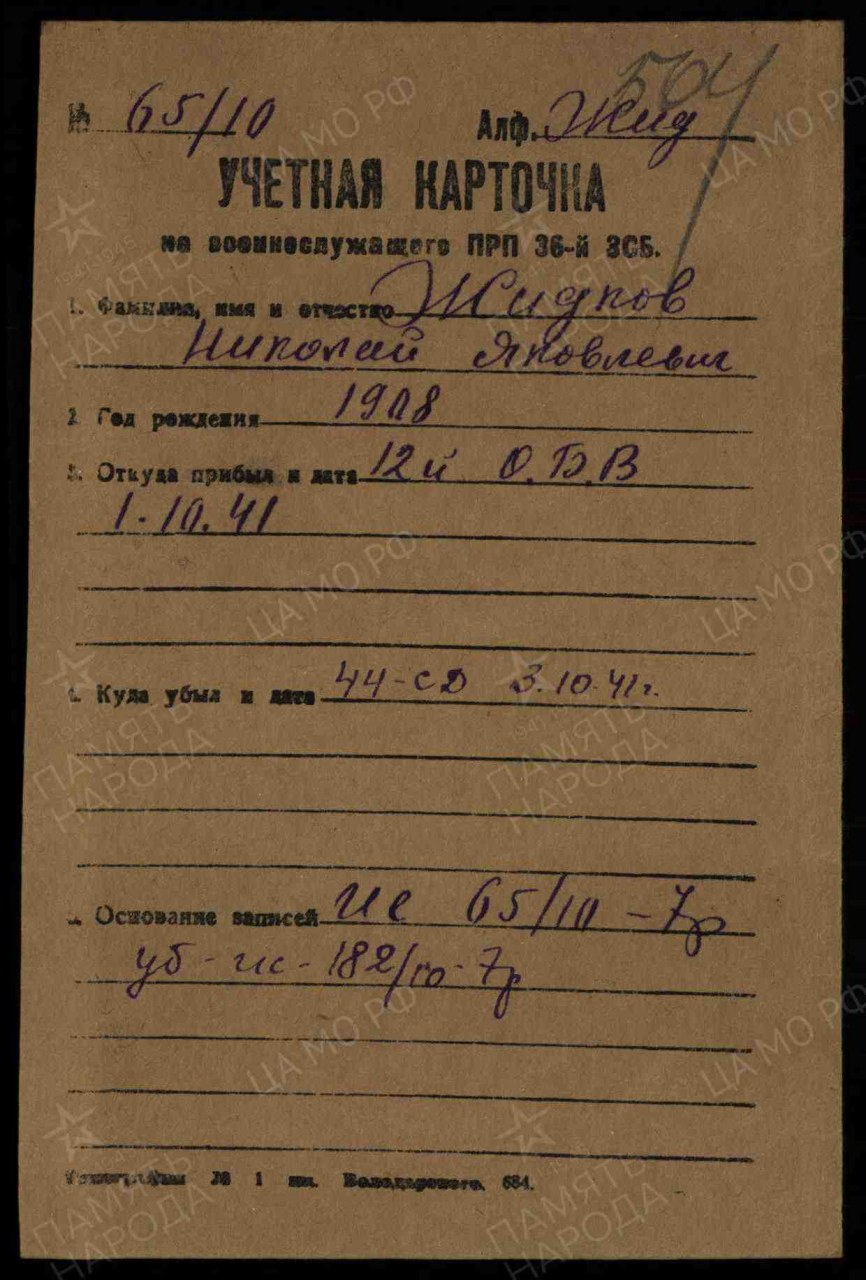 504
№ 65/10 Алф. Жид
УЧЕТНАЯ КАРТОЧКА
на военнослужащего ПРП 36-й ЗСБ.
1. Фамилия, имя и отчество Жидков
Николай Яковлевич
2. Год рождения 1908
3. Откуда прибыл и дата 12й О.Б.В
1.10.41
4. Куда убыл и дата 44-СД 3.10.41г.
Основание записей ис 65/10 - 7р
уб - ис - 182/10 - 7р
Типография № 1 им. Володарского. 684.
ЦА МО РФ
ПАМЯТЬ НАРОДА